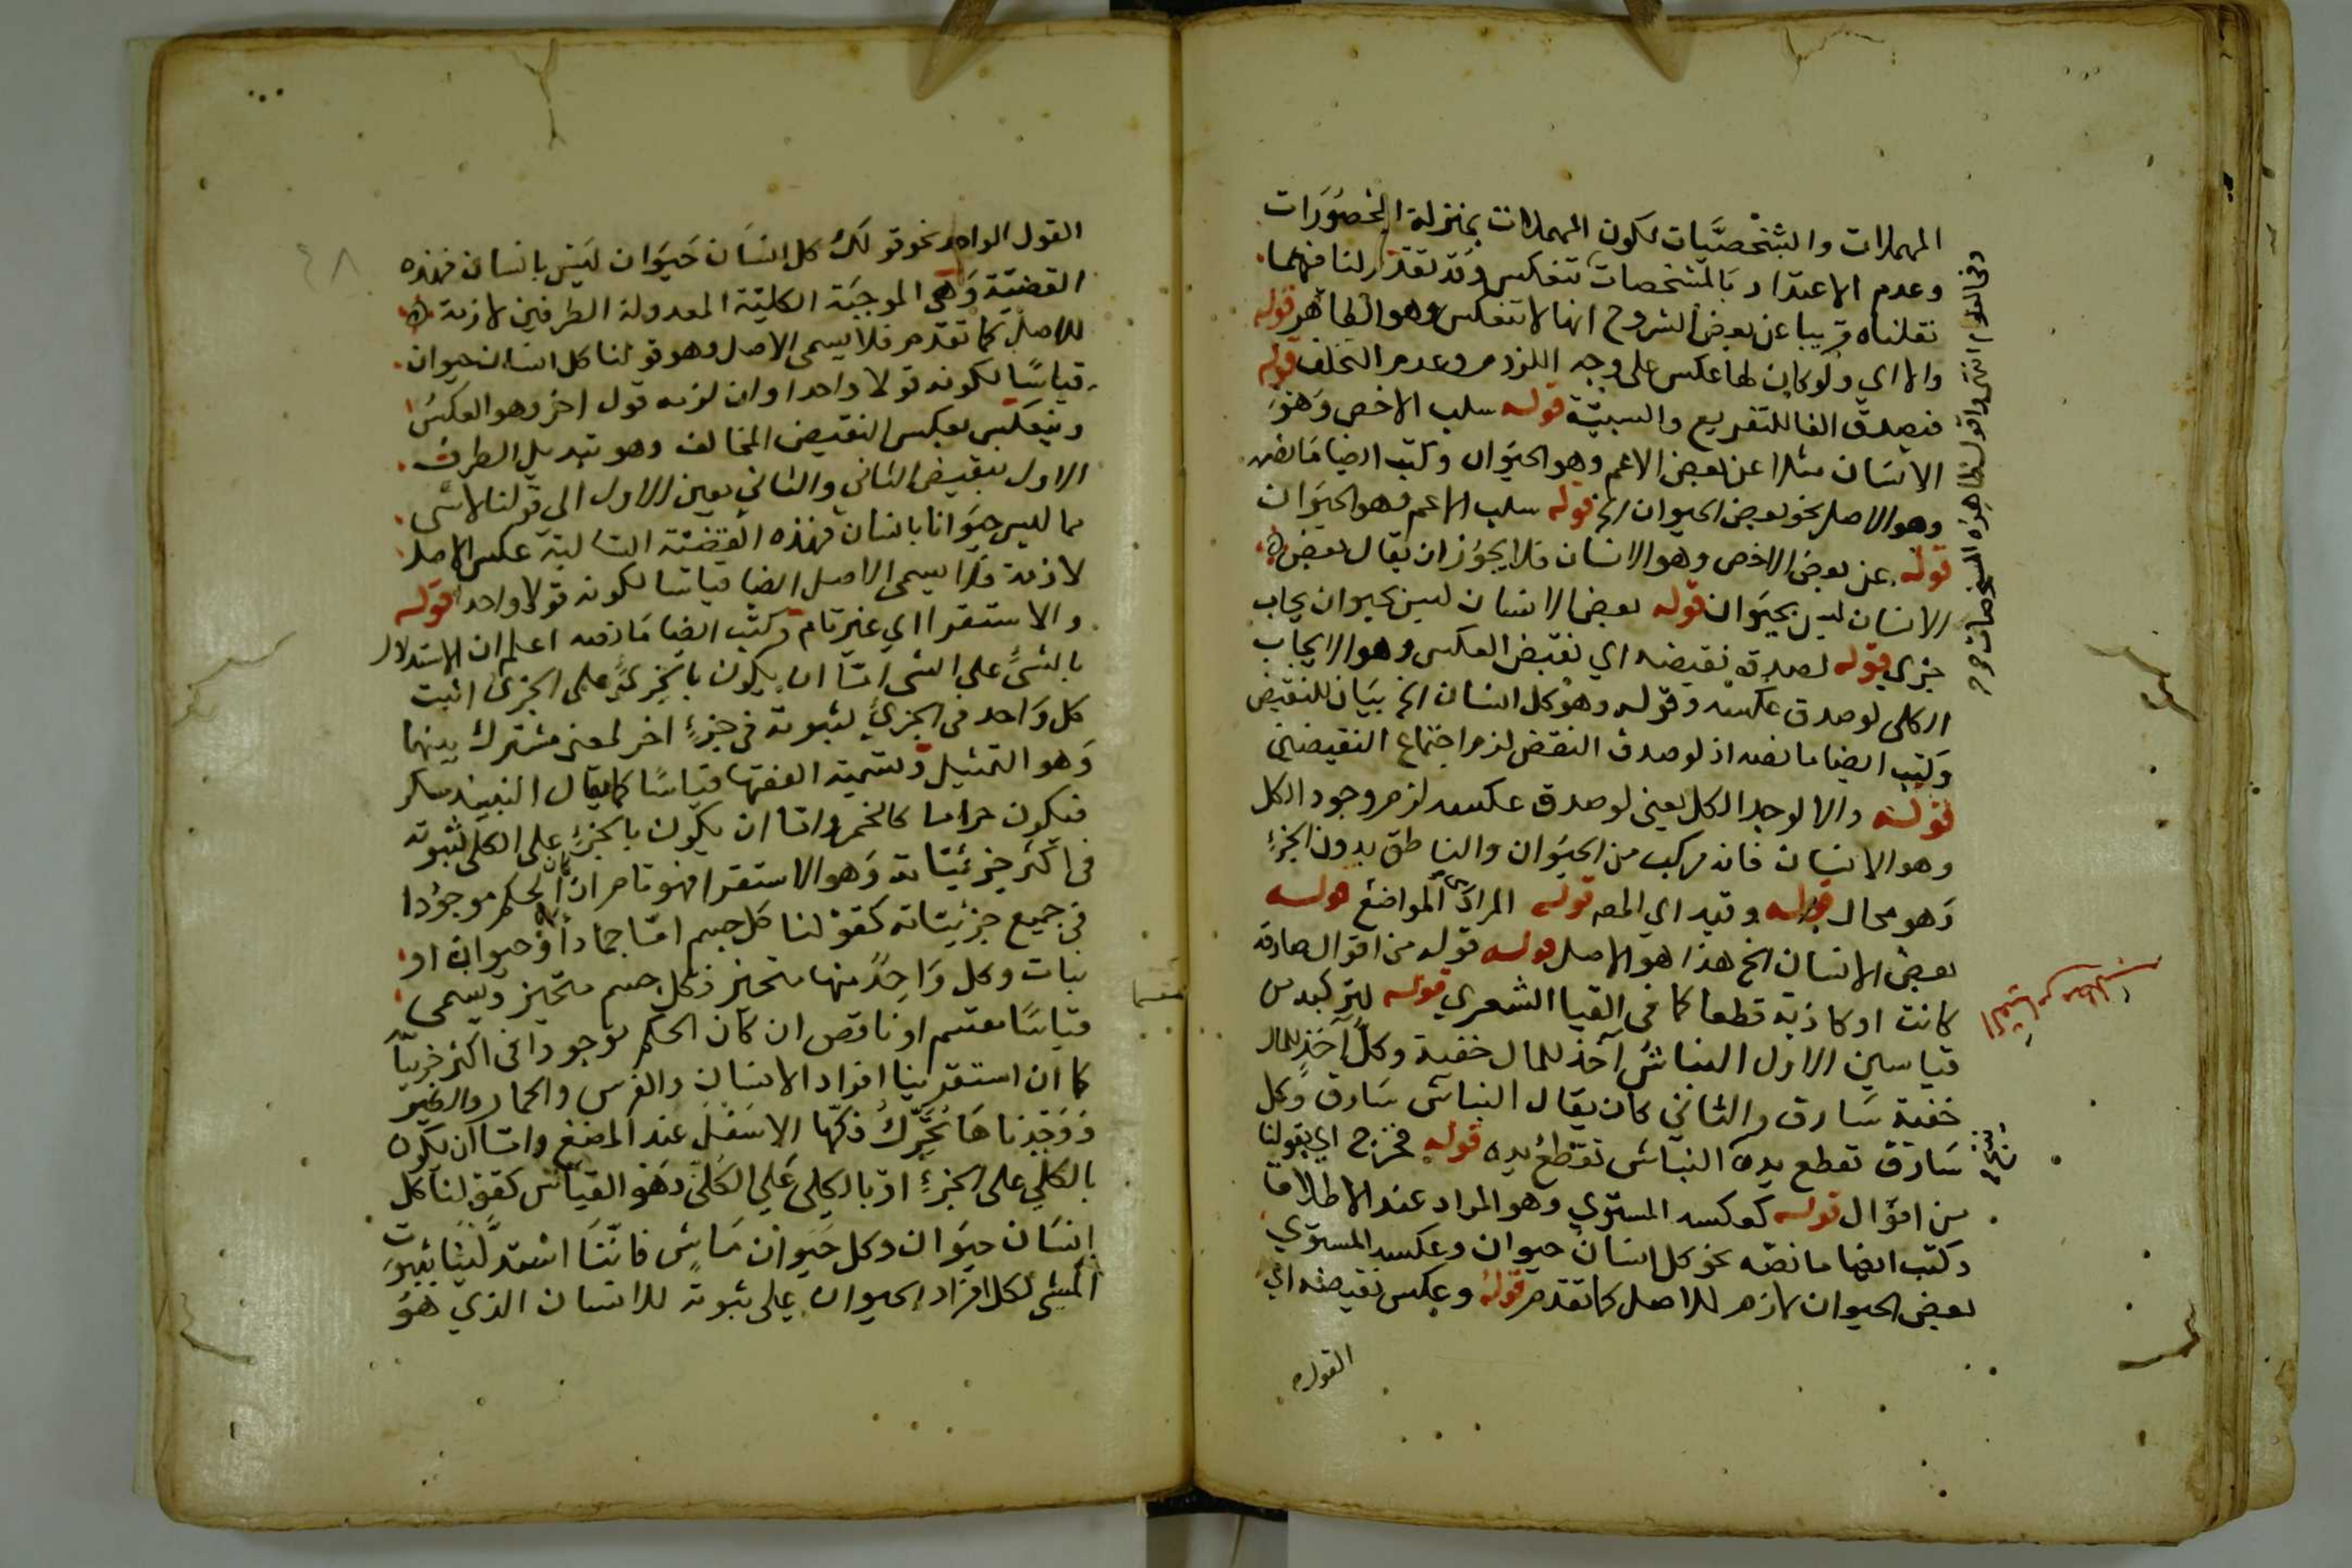 المهملات والشخصيات لكون المهملات بمنزلة المحصورات
وعدم الاعتداد بالمشخصات تنعكس وقد تقدر لنا فهما
نقلناه قريبا عن بعض الشروح انها لا تنعكس وهو الظاهر قوله
والا اي ولو كان لها عكس على وجه اللزوم وعدم التخلف قوله
فيصدق الفا للتفريع والسببية قوله سلب الاخص وهو
الانسان مثلا عن بعض الاعم وهو الحيوان وكتب ايضا ما نصه
وهو الاصل نحو بعض الحيوان الخ قوله سلب الاعم وهو الحيوان
قوله عن بعض الاخص وهو الانسان فلا يجوز ان يقال بعض
الانسان ليس بحيوان قوله بعض الانسان ليس بحيوان يجاب
جزي قوله لصدق نقيضه اي نقيض العكس وهو الايجاب
الكلي لو صدق عكسه وقوله وهو كل انسان الخ بيان للنقيض
وكتب ايضا ما نصه اذ لو صدق النقض لزم اجتماع النقيضين
قوله والا لوجد الكل يعني لو صدق عكسه لزم وجود الكل
وهو الانسان فانه مركب من الحيوان والناطق بدون الجزء
وهو محال قوله وقيد اي المص قوله المراد المواضع قوله
بعض الانسان الخ هذا هو الاصل قوله قوله من اقوال صادقة
كانت او كاذبة قطعا كما في القيا الشعري قوله لتركبه من
قياسين الاول النباش آخذ للمال خفية وكل آخذ للمال
خفية سارق والثاني كان يقال النباش سارق وكل
سارق تقطع يده النباش تقطع يده قوله مخرج اي بقولنا
من اقوال قوله كعكسه المستوي وهو المراد عند الاطلاق
وكتب ايضا ما نصه نحو كل انسان حيوان وعكسه المستوي
بعض الحيوان لازم للاصل كما تقدم قوله وعكس نقيضه اي
القول
٤٨
القول الواحد نحو قولك كل انسان حيوان ليس بانسان فهذه
القضية وهي الموجبة الكلية المعدولة الطرفين لازمة
للاصل كما تقدم فلا يسمى الاصل وهو قولنا كل انسان حيوان
قياسا لكونه قولا واحدا وان لزمه قول اخر وهو العكس
وينعكس بعكس النقيض المخالف وهو تبديل الطرف
الاول بنقيض الثاني والثاني بعين الاول الى قولنا لا شي
مما ليس حيوانا بانسان فهذه القضية السالبة عكس الاصل
لازمة فلا يسمى الاصل ايضا قياسا لكونه قولا واحدا قوله
والاستقرا اي غير تام وكتب ايضا ما نصه اعلم ان الاستدلال
بالشي على الشي اما ان يكون بالجزي على الجزي اثبت
كل واحد في الجزي لثبوته في جزء اخر لمعنى مشترك بينهما
وهو التمثيل وتسمية الفقها قياسا كما يقال النبيذ مسكر
فيكون حراما كالخمر واما ان يكون بالجزء على الكلي لثبوته
في اكثر جزئياته وهو الاستقرا فهو تام ان كان الحكم موجودا
في جميع جزئياته كقولنا كل جسم اما جمادا وحيوان او
نبات وكل واحد منها متحيز فكل جسم متحيز ويسمى
قياسا مقسم او ناقص ان كان الحكم موجودا في اكثر جزئيا
كما ان استقرينا افراد الانسان والفرس والحمار والبعير
فوجدناها تحرك فكها الاسفل عند المضغ واما ان يكون
بالكلي على الجزء او بالكلي على الكلي وهو القياس كقولنا كل
انسان حيوان وكل حيوان ماش فاننا استدللنا بثبوت
المشي لكل افراد الحيوان على ثبوته للانسان الذي هو
مقسما